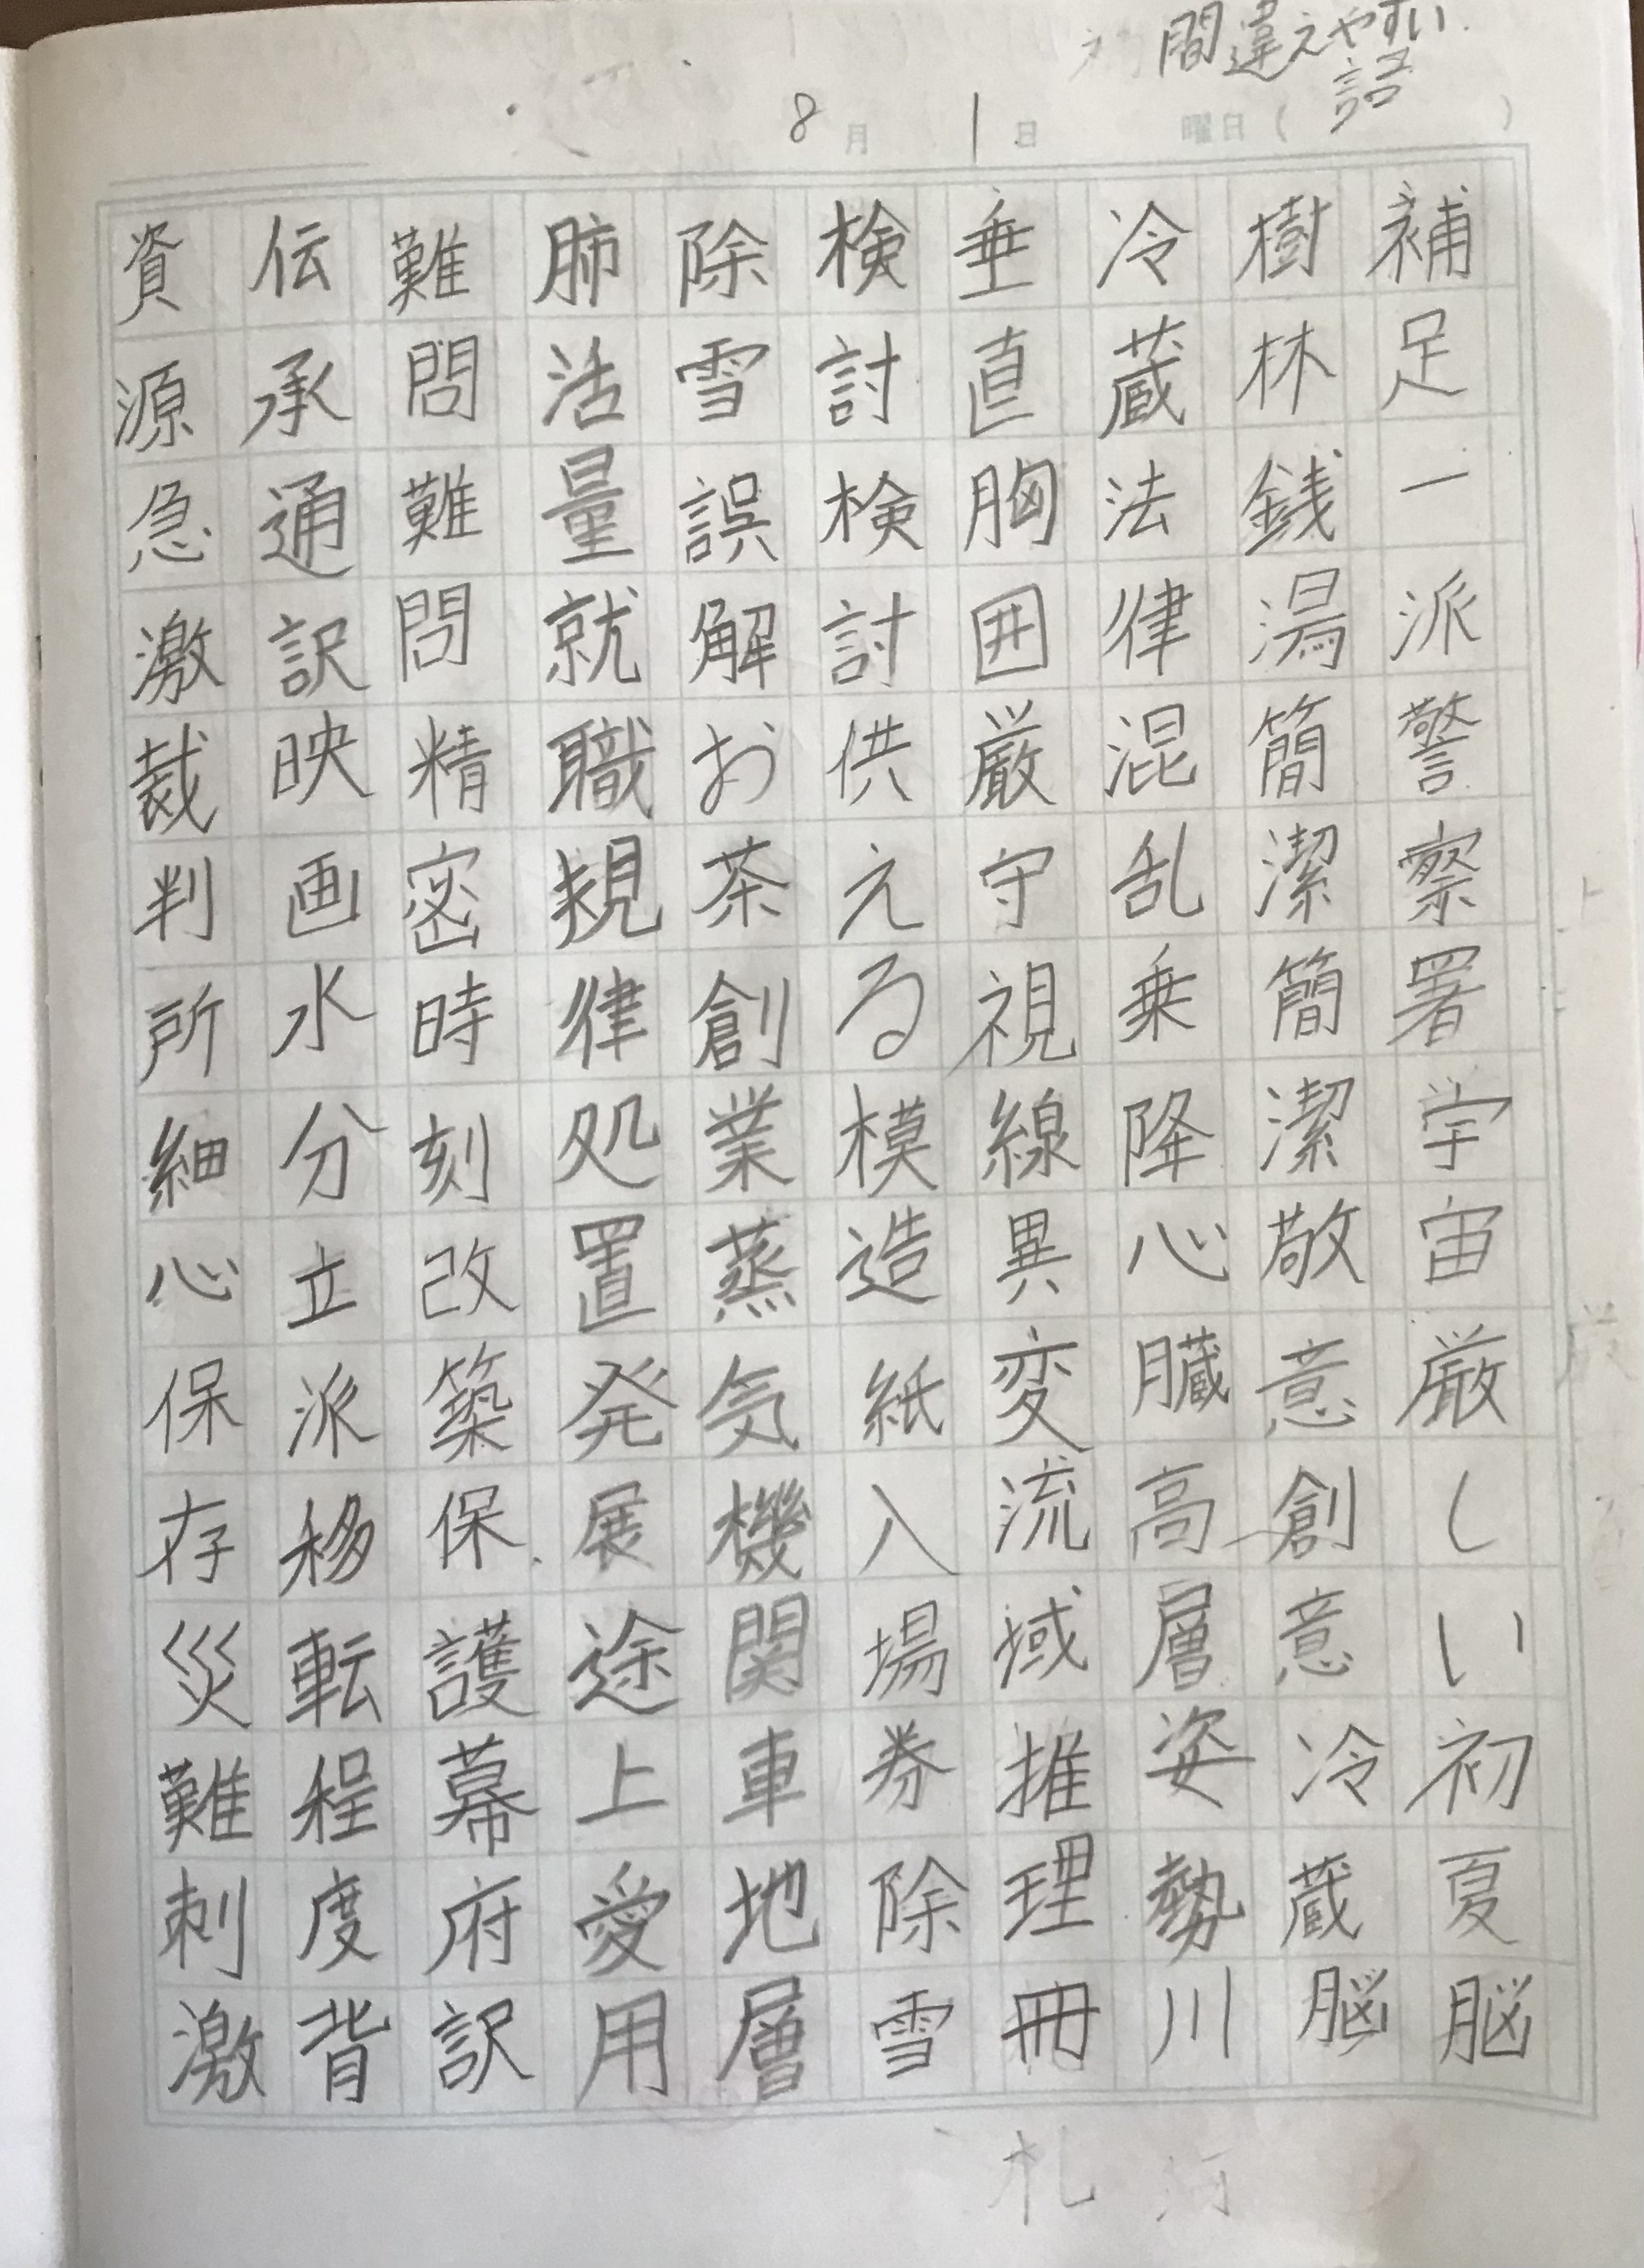 間違えやすい
語
8月1日 曜日( )
補足一派警察署宇宙厳しい初夏脳
樹林銭湯簡潔簡潔敬意創意冷蔵脳
冷蔵法律混乱乗降心臓高層姿勢川
垂直胸囲厳守視線異変流域推理冊
検討検討供える模造紙入場券除雪
除雪誤解お茶創業蒸気機関車地層
肺活量就職規律処置発展途上愛用
難問難問精密時刻改築保護幕府訳
伝承通訳映画水分立派移転程度背
資源急激裁判所細心保存災難刺激
札